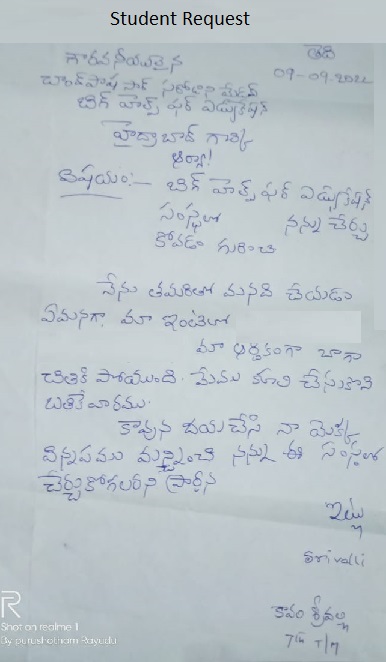 Student Request
గౌరవనీయులైన తేది
చాంద్‌పాష సార్ సరోజని మేడమ్ 09-09-2022
బిగ్ హెల్ప్ ఫర్ ఎడ్యుకేషన్
హైద్రాబాద్ గారికి
ఆర్యా!
విషయం:- బిగ్ హెల్ప్ ఫర్ ఎడ్యుకేషన్
సంస్థలో నన్ను చేర్చు
కోవడం గురించి
నేను తమరితో మనవి చేయడం
ఏమనగా మా ఇంటిలో
మా ఆర్థికంగా బాగా
చితికి పోయింది. మేము కూలి చేసుకొని
బతికేవారము.
కావున దయచేసి నా యొక్క
విన్నపము మన్నించి నన్ను ఈ సంస్థలో
చేర్చుకోగలరని ప్రార్థన
ఇట్లు
Srivalli
శ్రీవల్లి
7th T/M
Shot on realme 1
By purushotham Rayudu